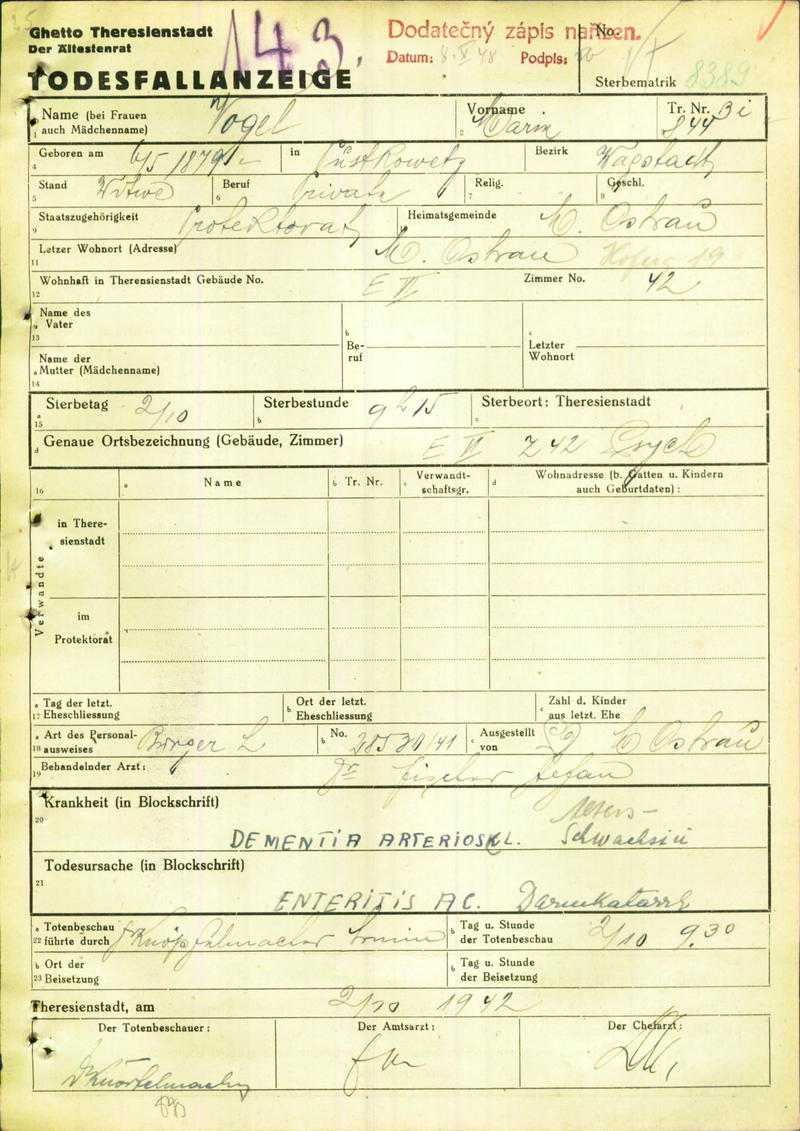 Ghetto Theresienstadt
Der Ältestenrat
TODESFALLANZEIGE
143
Dodatečný zápis nařízen.
Datum: 8. X 48 Podpis:
No.
Sterbematrik 8389
1 Name (bei Frauen auch Mädchenname) Vogel
2 Vorname Marie
Tr. Nr. Bi 844
4 Geboren am 6/5 1879 in Pustkowetz Bezirk Wagstadt
5 Stand Witwe 6 Beruf Private 7 Relig. 8 Geschl.
9 Staatszugehörigkeit Protektorat Heimatsgemeinde M. Ostrau
11 Letzer Wohnort (Adresse) M. Ostrau 19
12 Wohnhaft in Theresienstadt Gebäude No. E VI Zimmer No. 42
13 a Name des Vater
14 a Name der Mutter (Mädchenname)
b Beruf
c Letzter Wohnort
15 a Sterbetag 2/10 b Sterbestunde 9h 15 c Sterbeort: Theresienstadt
d Genaue Ortsbezeichnung (Gebäude, Zimmer) E VI Z 42 Psych
16 a Name b Tr. Nr. c Verwandtschaftsgr. d Wohnadresse (b. Gatten u. Kindern auch Geburtdaten):
Verwandte
in Theresienstadt
im Protektorat
17 a Tag der letzt. Eheschliessung b Ort der letzt. Eheschliessung c Zahl d. Kinder aus letzt. Ehe
18 a Art des Personalausweises Bürger L b No. c Ausgestellt von M Ostrau
19 Behandelnder Arzt: Dr Fischer Stefan
20 Krankheit (in Blockschrift)
Alters-
DEMENTIA ARTERIOSKL. Schwachsin
21 Todesursache (in Blockschrift)
ENTERITIS AC. Darmkatarrh
22 a Totenbeschau führte durch b Tag u. Stunde der Totenbeschau 2/10 9.30
23 b Ort der Beisetzung b Tag u. Stunde der Beisetzung
Theresienstadt, am 2/10 1942
Der Totenbeschauer: Der Amtsarzt: Der Chefarzt: